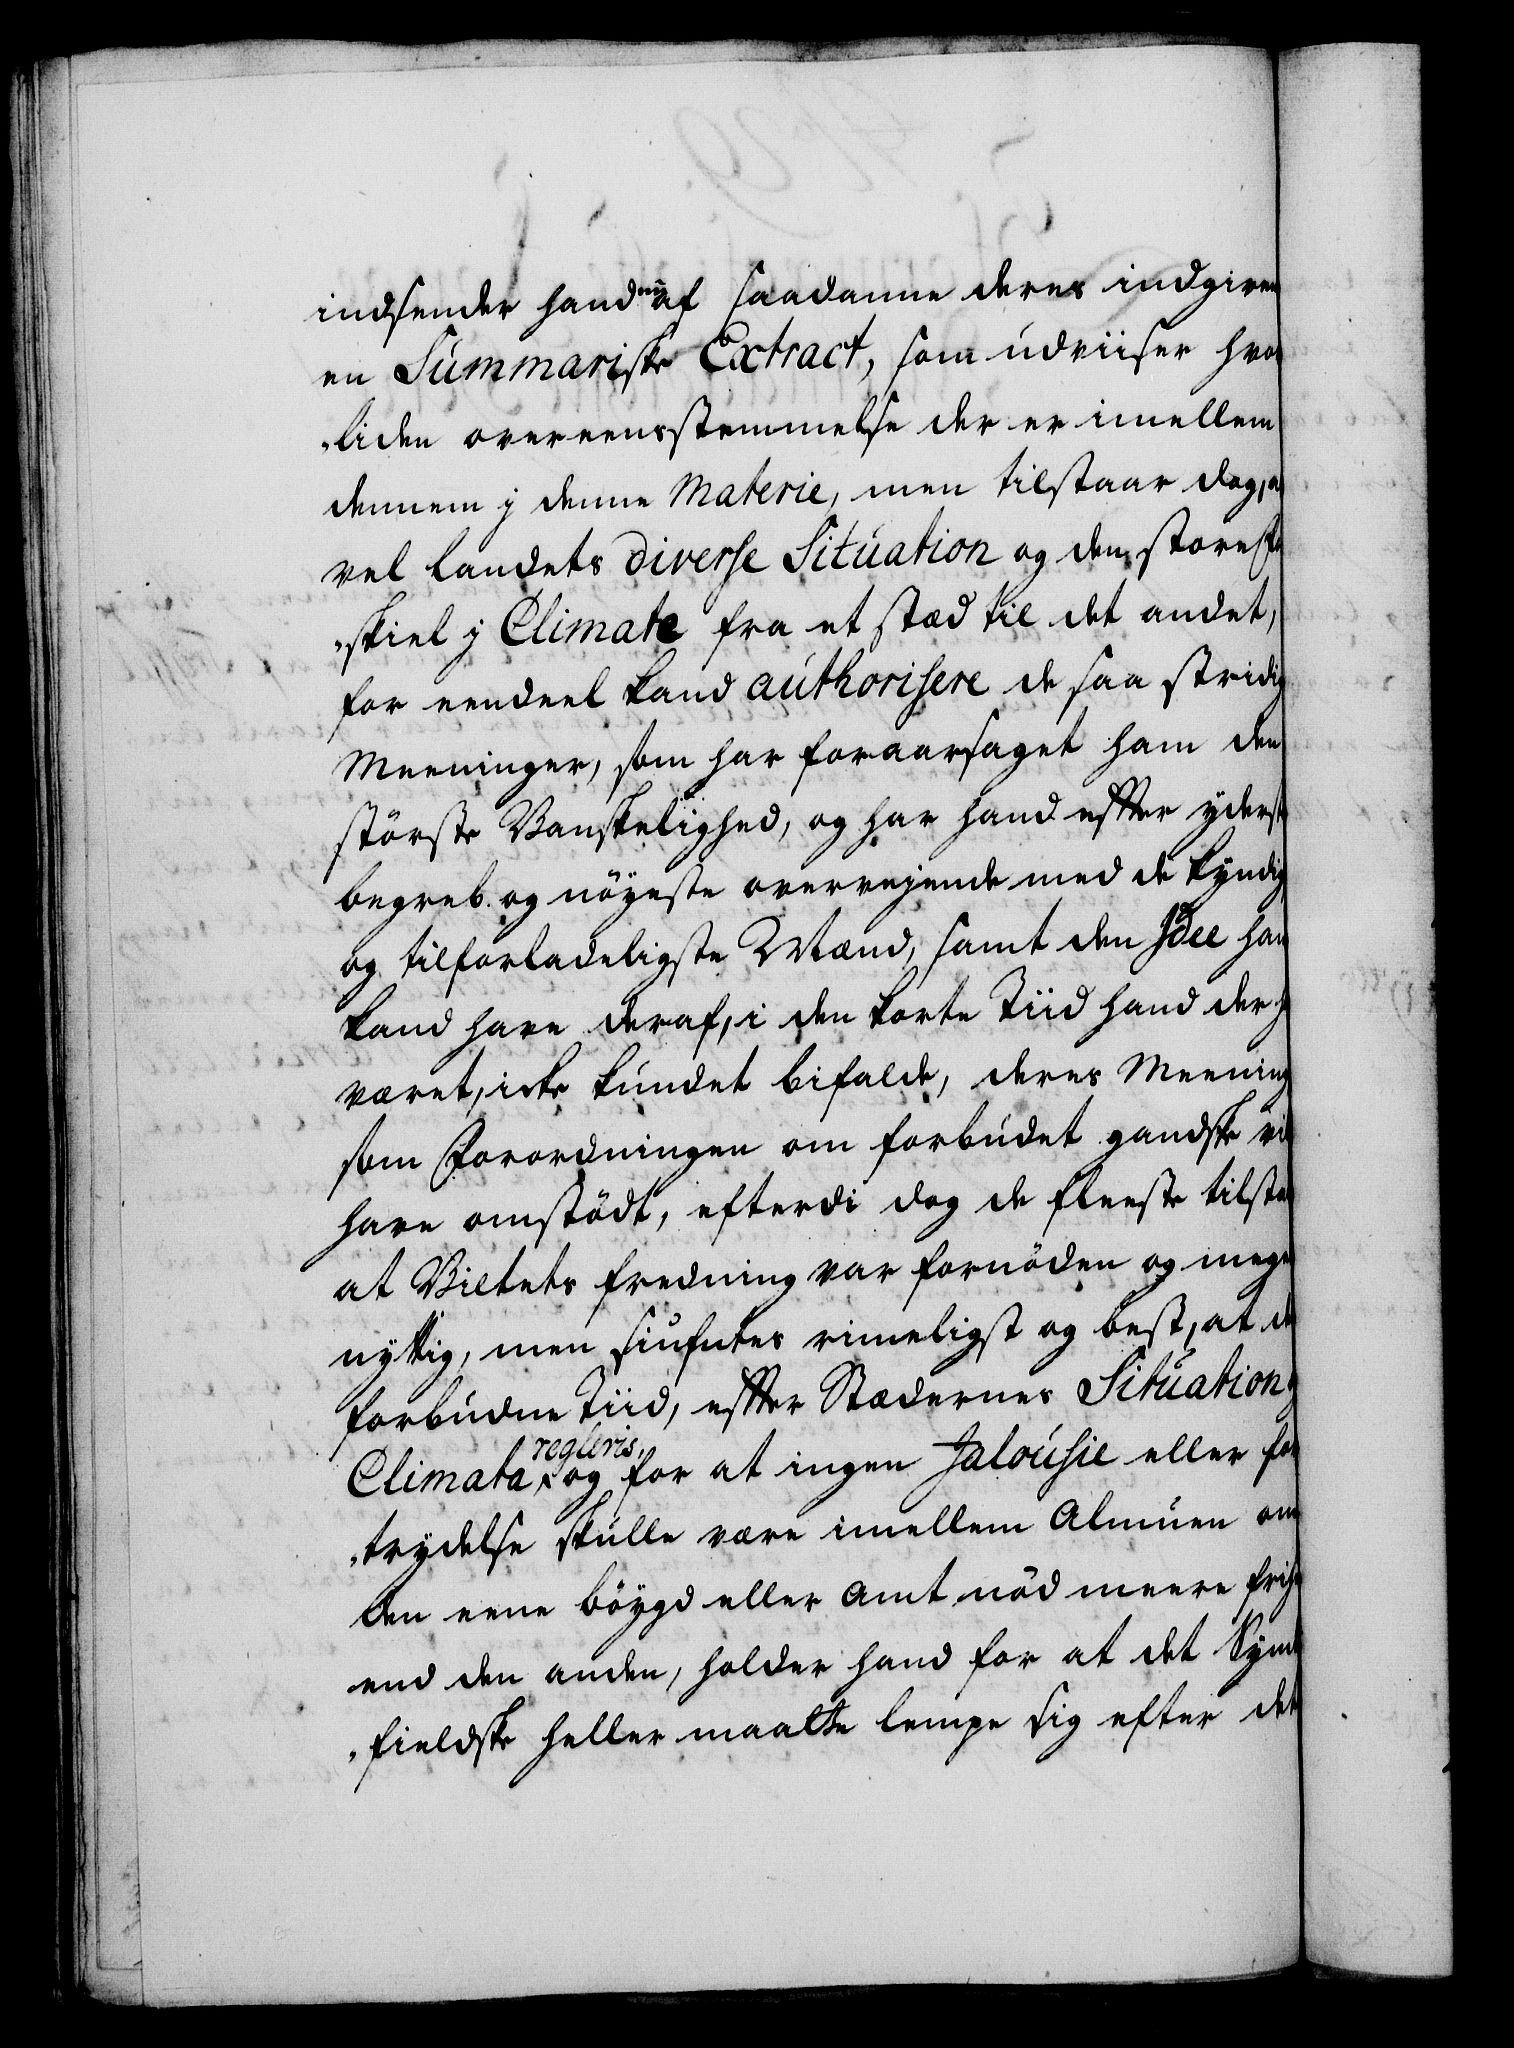 indsender hand nu af saadanne deres indgiven
en Summariske Extract, som udviiser hvor
„liden overeensstemmelse der er imellem
dennem j denne Materie, men tilstaar dog, a
vel landets diverse Situation og den store fr
„skiel j Climate fra et stæd til det andet,
for eendeel kand authorisere de saa stridig
Meeninger, som har foraarsaget ham den
störste Vanskelighed, og har hand effter yderst
begreb og nöyeste overvejende med de kyndig
og tilforladeligste Mænd, samt den Idee han
kand have deraf, i den korte Tiid hand der h
været, icke kundet bifalde, deres Meening
som Forordningen om forbudet gandske vil
have omstödt, efterdi dog de fleeste tilstaa
at Vildtets fredning var fornöden og mege
nyttig, men siufntes rimeligst og best, at d
forbudne Tiid, effter Stædernes Situation,
Climata regleris, og for at ingen Jalousie eller for
„trydelse skulle være imellem Almuen om
den eene böygd eller Amt nöd meere frihe
end den anden, holder hand for at det Synd
„fieldske heller maatte lempe sig efter det